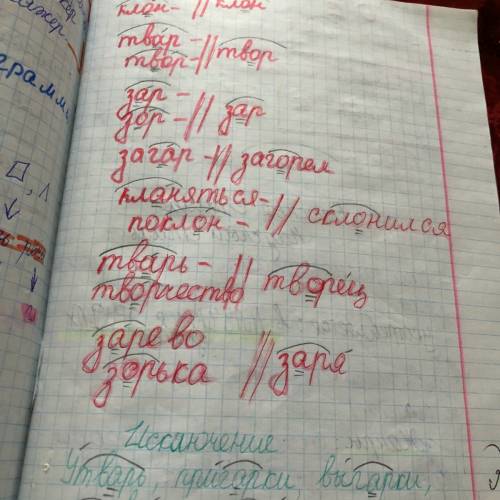 клон- // клон
твар -
твор- // твор
зар -
зор - // зар
загар - // загорел
кланяться-
поклон - // склонился
тварь -
творчество // творец
зарево
зорька // заря
Исключение
Утварь, пригарки, выгарки,